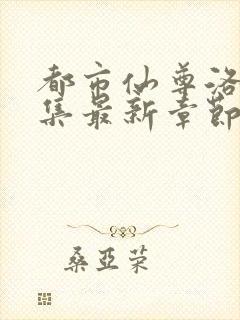 都市仙尊洛
集最新章节
桑亚荣